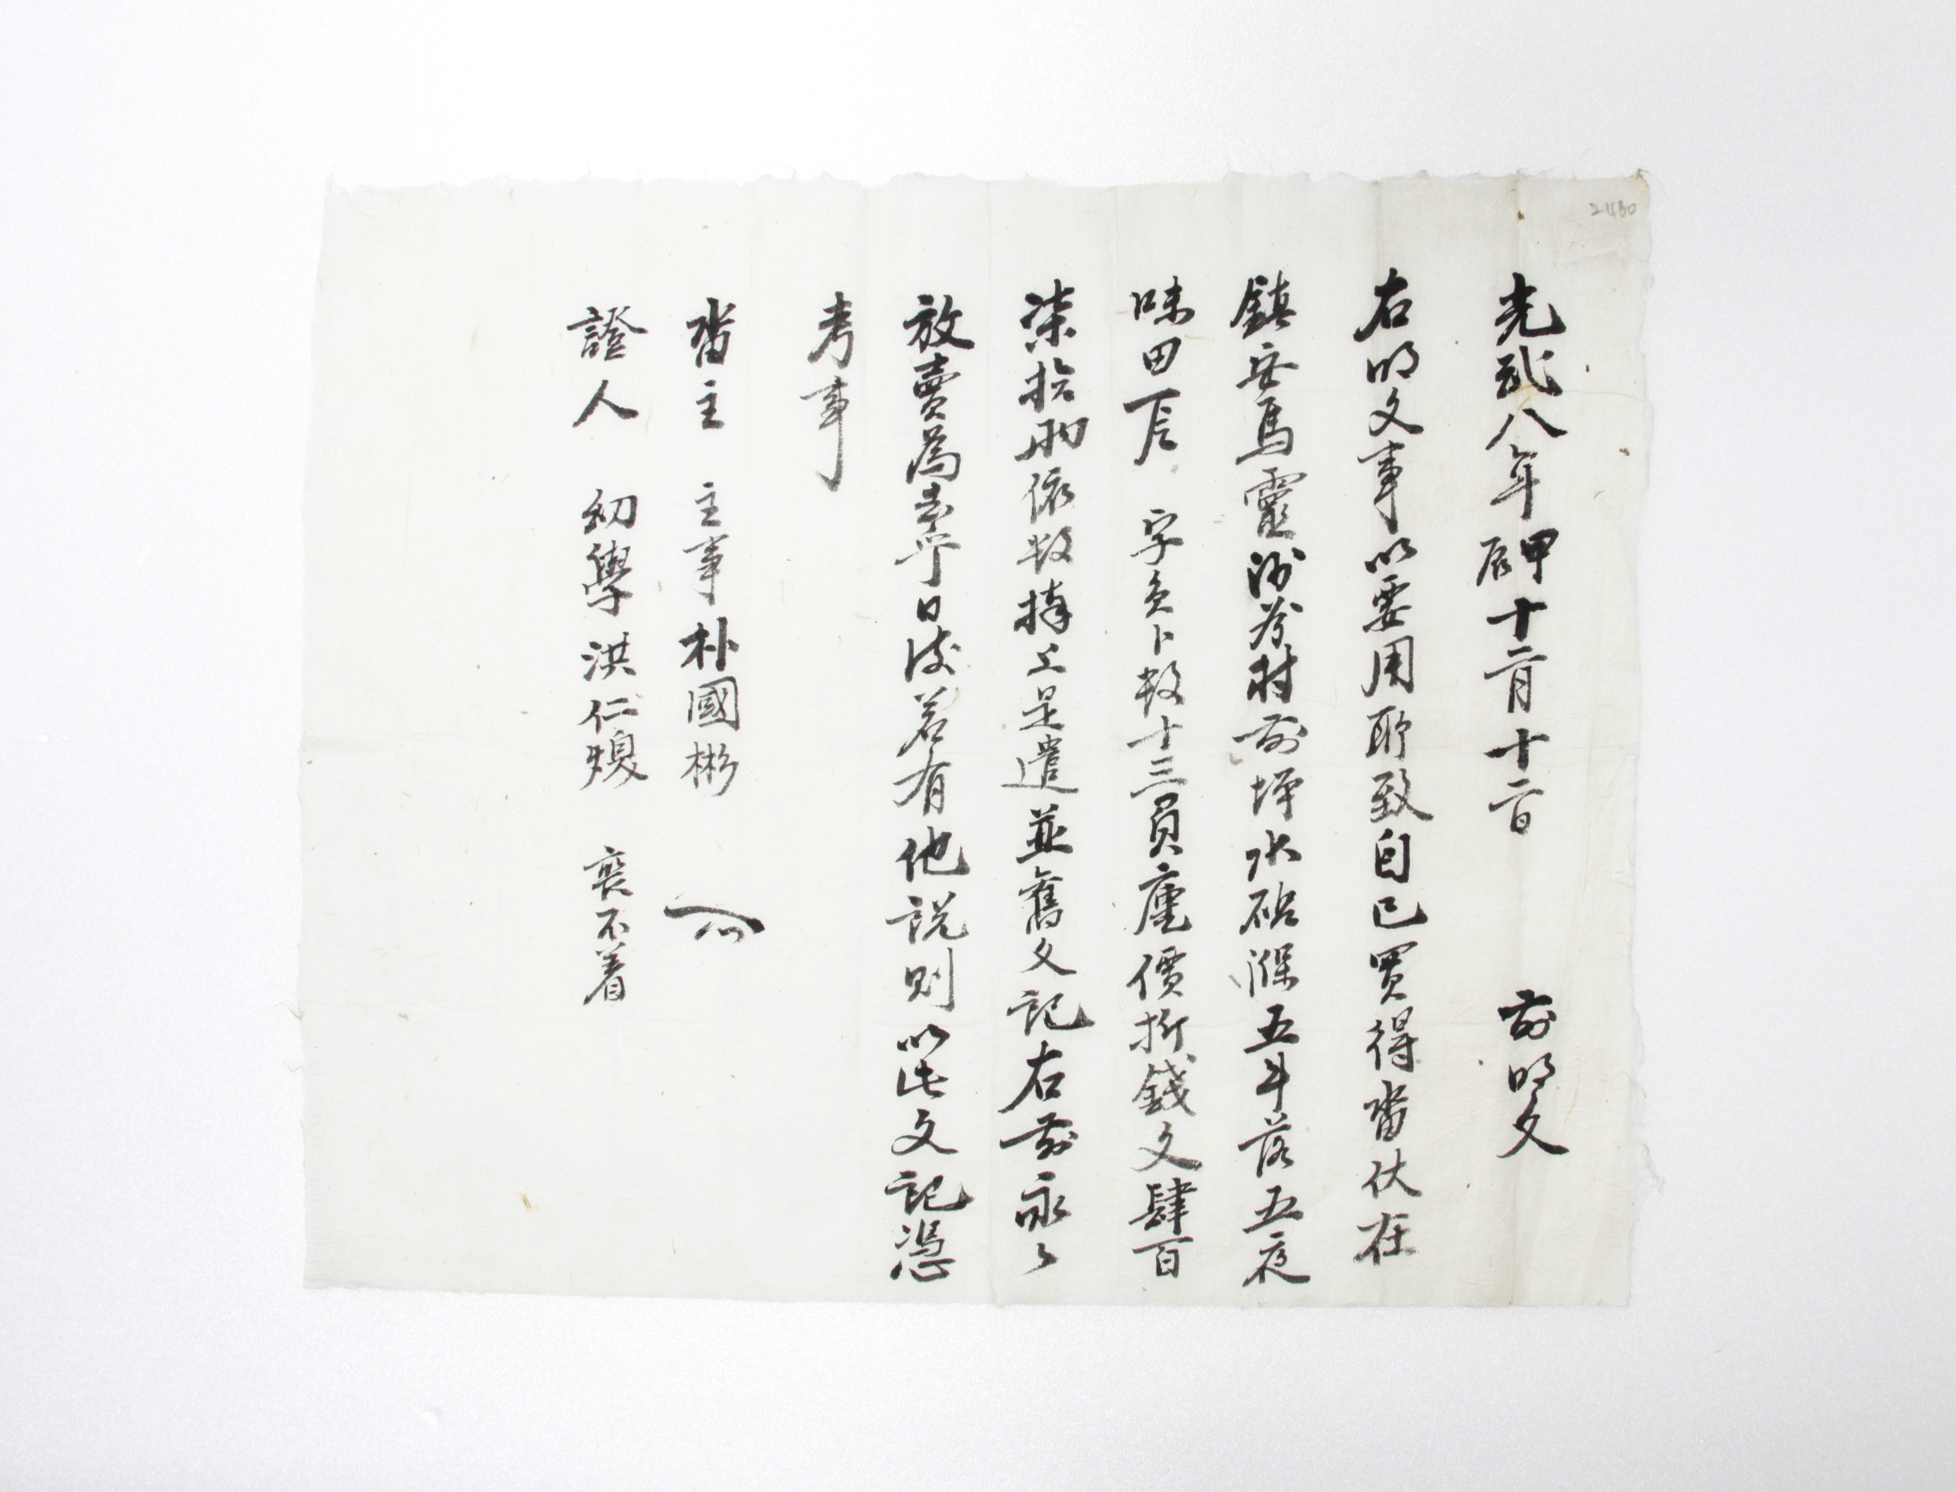 2480
光武八年甲辰十二月十二日 前明文
右明文事以要用所致自己買得畓伏在
鎭安馬靈面 村前坪水砧洑五斗落五夜
味田 字負卜數十三負庫價折錢文肆百
柒拾兩依數捧上是遣並舊文記右前永々
放賣爲去乎日後若有他說則以此文記憑
考事
畓主 主事 朴國彬
證人 幼學 洪仁 喪不着